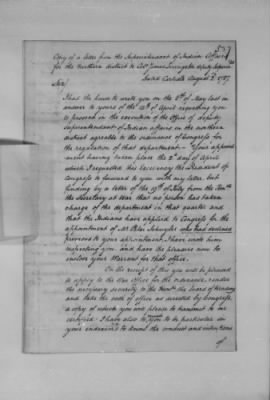 Copy of a letter from the Superintendent of Indian Affairs
for the Northern district to Colo. James Livingston deputy Superin
Carlisle August 8. 1787
Sir,
I had the honor to write you on the 8th of May last in
answer to yours of the 12th of April requesting you
to proceed in the execution of the Office of deputy
superintendant of Indian affairs in the northern
district agreeable to the ordinance of Congress for
the regulation of that department — Your appoint
ment having taken place the 2d day of April
which I requested his excellency the President of
Congress to forward to you with my letter. but
finding by a letter of the 19th of July from the Honble
the Secretary at War that no person has taken
charge of the department in that quarter and
that the Indians have applied to Congress for the
appointment of Mr Peter Schuyler who had declined
previous to your appointment I have wrote him
respecting you and have the pleasure now to
inclose your Warrant for that office.
On the receipt of this you will be pleased
to apply to the War Office for the ordinance, render
the necessary security to the Honble the board of treasury
and take the oath of office as directed by Congress
a copy of which you will please to transmit to me
certified. I have also to you to be particular in
your endeavors to learn the conduct and intentions
of